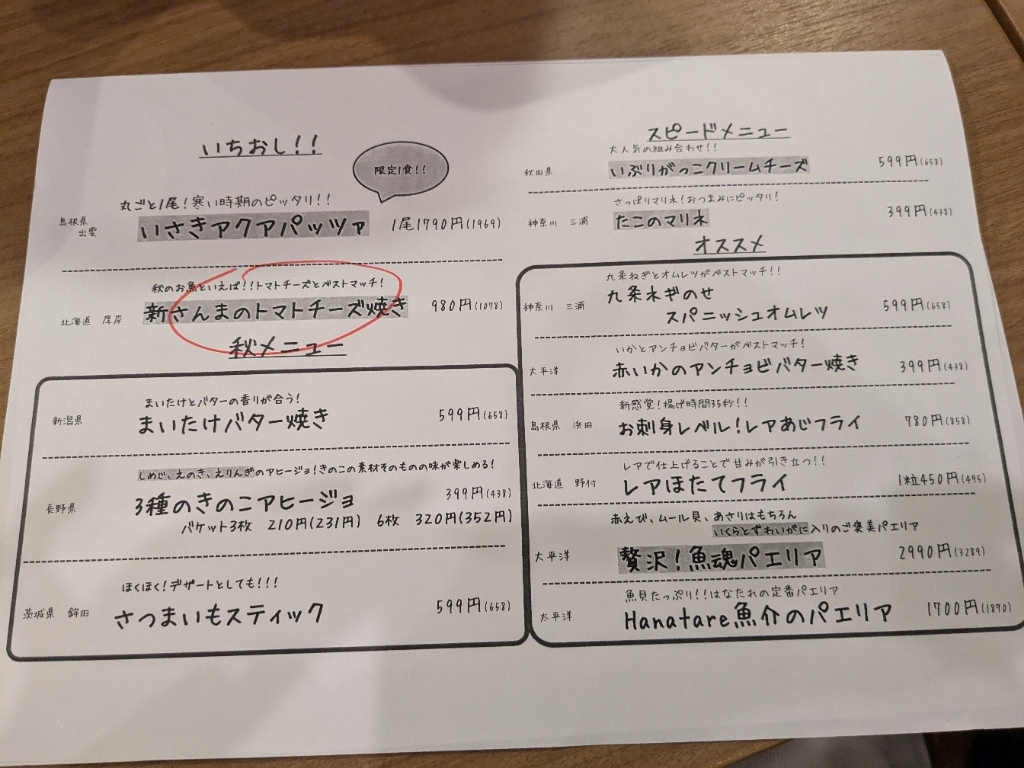 いちおし!!
限定1食!!
丸ごと1尾!寒い時期のピッタリ!!
島根県
出雲
いさきアクアパッツァ 1尾1790円(1969)
秋のお魚といえば!!トマトチーズとベストマッチ!
北海道 厚岸 新さんまのトマトチーズ焼き 980円(1078)
秋メニュー
まいたけとバターの香りが合う!
新潟県 まいたけバター焼き 599円(658)
しめじ、えのき、えりんぎのアヒージョ!きのこの素材そのものの味が楽しめる!
長野県 3種のきのこアヒージョ 399円(438)
バケット3枚 210円(231円) 6枚 320円(352円)
ほくほく!デザートとしても!!!
茨城県 鉾田 さつまいもスティック 599円(658)
スピードメニュー
大人気の組み合わせ!!
秋田県 いぶりがっこクリームチーズ 599円(658)
さっぱりマリネ!おつまみにピッタリ!
神奈川 三浦 たこのマリネ 399円(438)
オススメ
九条ねぎとオムレツがベストマッチ!!
神奈川 三浦 九条ネギのせ
スパニッシュオムレツ 599円(658)
いかとアンチョビバターがベストマッチ!
太平洋 赤いかのアンチョビバター焼き 399円(438)
新感覚!揚げ時間35秒!!
島根県 浜田 お刺身レベル!レアあじフライ 780円(858)
レアで仕上げることで甘みが引き立つ!!
北海道 野付 レアほたてフライ 1粒450円(495)
赤えび、ムール貝、あさりはもちろん
いくらとずわいがに入りのご褒美パエリア
太平洋 贅沢!魚魂パエリア 2990円(3289)
魚貝たっぷり!!はなたれの定番パエリア
太平洋 Hanatare魚介のパエリア 1700円(1870)